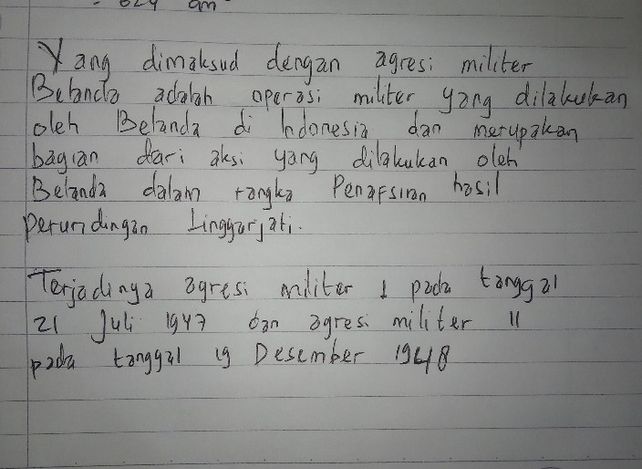 Yang dimaksud dengan agresi militer
Belanda adalah operasi militer yang dilakukan
oleh Belanda di Indonesia dan merupakan
bagian dari aksi yang dilakukan oleh
Belanda dalam rangka Penafsiran hasil
perundingan Linggarjati.
Terjadinya agresi militer I pada tanggal
21 Juli 1947 dan agresi militer II
pada tanggal 19 Desember 1948